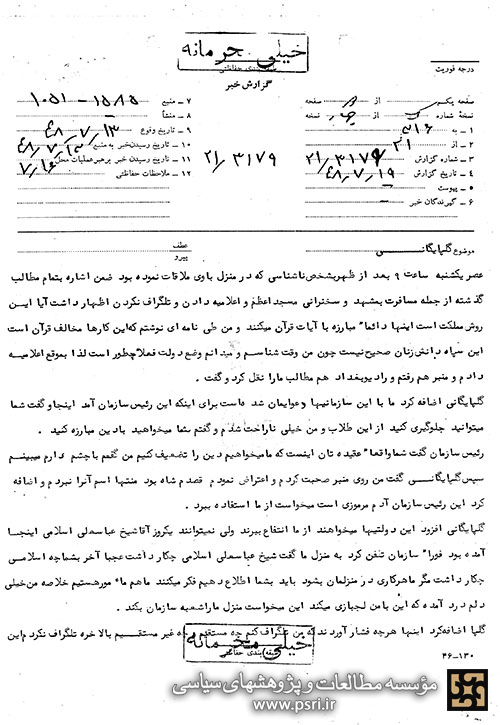 خیلی محرمانه
طبقه‌بندی حفاظتی
درجه فوریت
گزارش خبر
صفحه یک از دو صفحه
نسخه شماره از چهار نسخه
۱ ـ به ۳۱۶
۲ ـ از ۲۱
۳ ـ شماره گزارش ۲۱/۳۱۷۹
۴ ـ تاریخ گزارش ۴۸/۷/۱۹
۵ ـ پیوست
۶ ـ گیرندگان خبر
۷ ـ منبع ۱۵۸۵ - ۱۰۵۱
۸ ـ منشأ
۹ ـ تاریخ وقوع ۴۸/۷/۱۳
۱۰ ـ تاریخ رسیدن خبر به منبع ۴۸/۷/۱۳
۱۱ ـ تاریخ رسیدن خبر برهبر عملیات محل ۷/۱۶
۱۲ ـ ملاحظات حفاظتی
۲۱/۳۱۷۹
موضوع گلپایگانی
عطف
پیرو
عصر یکشنبه ساعت ۹ بعد از ظهر شخص ناشناسی که در منزل باوی ملاقات نموده بود ضمن اشاره بتمام مطالب
گذشته از جمله مسافرت بمشهد و سخنرانی مسجد اعظم و اعلامیه دادن و تلگراف نکردن اظهار داشت آیا این
روش مملکت است اینها دائما مبارزه با آیات قرآن میکنند و من طی نامه ای نوشتم که این کارها مخالف قرآن است
این سپاه دانش زنان صحیح نیست چون من وقت شناسم و میدانم وضع دولت فعلا چطور است لذا بموقع اعلامیه
دادم و منبر هم رفتم و رادیو بغداد هم مطالب ما را نقل کرد و گفت .
گلپایگانی اضافه کرد ما با این سازمانیها دعوایمان شد است برای اینکه این رئیس سازمان آمد اینجا و گفت شما
میتوانید جلوگیری کنید از این طلاب و من خیلی ناراحت شدم و گفتم شما میخواهید با دین مبارزه کنید .
رئیس سازمان گفت شما واقعا عقیده تان اینست که ما میخواهیم دین را تضعیف کنیم من گفتم با چشم دارم میبینم
سپس گلپایگانی گفت من روی منبر صحبت کردم و اعتراض نمودم قصدم شاه بود منتها اسم آنرا نبردم و اضافه
کرد این رئیس سازمان آدم مرموزی است میخواست از ما استفاده ببرد .
گلپایگانی افزود این دولتیها میخواهند از ما انتفاع ببرند ولی نمیتوانند یکروز آقا شیخ عباسعلی اسلامی اینجا
آمده بود فورا سازمان تلفن کرد به منزل ما گفت شیخ عباسعلی اسلامی چکار داشت عجبا آخر بشما چه اسلامی
چکار داشت مگر ما هرکاری در منزلمان بشود باید بشما اطلاع دهیم فکر میکنند ما هم مأمور هستیم خلاصه من خیلی
دلم درد آمده که این با من لجبازی میکند این میخواست منزل ما را شعبه سازمان بکند .
گلپا اضافه کرد اینها هرچه فشار آوردند که من تلگراف کنم چه مستقیم چه غیر مستقیم بالاخره تلگراف نکردم این
خیلی محرمانه
طبقه‌بندی حفاظتی
۴۶-۱۳۰
مؤسسه مطالعات و پژوهشهای سیاسی
www.psri.ir